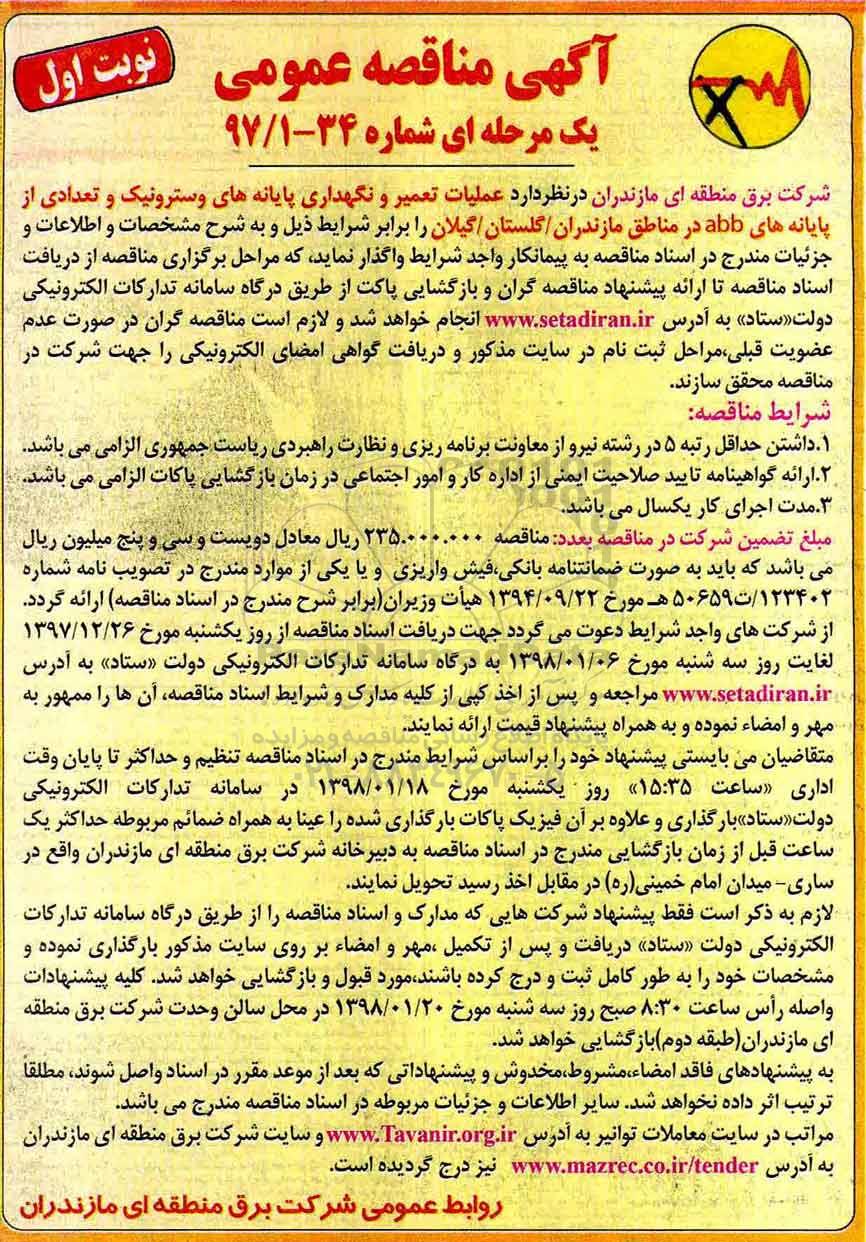 نوبت اول
آگهی مناقصه عمومی
یک مرحله ای شماره ۳۴-۹۷/۱
شرکت برق منطقه ای مازندران درنظردارد عملیات تعمیر و نگهداری پایانه های وسترونیک و تعدادی از
پایانه های abb در مناطق مازندران/گلستان/گیلان را برابر شرایط ذیل و به شرح مشخصات و اطلاعات و
جزئیات مندرج در اسناد مناقصه به پیمانکار واجد شرایط واگذار نماید، که مراحل برگزاری مناقصه از دریافت
اسناد مناقصه تا ارائه پیشنهاد مناقصه گران و بازگشایی پاکت از طریق درگاه سامانه تدارکات الکترونیکی
دولت«ستاد» به آدرس www.setadiran.ir انجام خواهد شد و لازم است مناقصه گران در صورت عدم
عضویت قبلی،مراحل ثبت نام در سایت مذکور و دریافت گواهی امضای الکترونیکی را جهت شرکت در
مناقصه محقق سازند.
شرایط مناقصه:
۱.داشتن حداقل رتبه ۵ در رشته نیرو از معاونت برنامه ریزی و نظارت راهبردی ریاست جمهوری الزامی می باشد.
۲.ارائه گواهینامه تایید صلاحیت ایمنی از اداره کار و امور اجتماعی در زمان بازگشایی پاکات الزامی می باشد.
۳.مدت اجرای کار یکسال می باشد.
مبلغ تضمین شرکت در مناقصه بعدد: مناقصه ۲۳۵.۰۰۰.۰۰۰ ریال معادل دویست و سی و پنج میلیون ریال
می باشد که باید به صورت ضمانتنامه بانکی،فیش واریزی و یا یکی از موارد مندرج در تصویب نامه شماره
۱۲۳۴۰۲/ت۵۰۶۵۹ هـ مورخ ۱۳۹۴/۰۹/۲۲ هیأت وزیران(برابر شرح مندرج در اسناد مناقصه) ارائه گردد.
از شرکت های واجد شرایط دعوت می گردد جهت دریافت اسناد مناقصه از روز یکشنبه مورخ ۱۳۹۷/۱۲/۲۶
لغایت روز سه شنبه مورخ ۱۳۹۸/۰۱/۰۶ به درگاه سامانه تدارکات الکترونیکی دولت «ستاد» به آدرس
www.setadiran.ir مراجعه و پس از اخذ کپی از کلیه مدارک و شرایط اسناد مناقصه، آن ها را ممهور به
مهر و امضاء نموده و به همراه پیشنهاد قیمت ارائه نمایند.
متقاضیان می بایستی پیشنهاد خود را براساس شرایط مندرج در اسناد مناقصه تنظیم و حداکثر تا پایان وقت
اداری «ساعت ۱۵:۳۵» روز یکشنبه مورخ ۱۳۹۸/۰۱/۱۸ در سامانه تدارکات الکترونیکی
دولت«ستاد»بارگذاری و علاوه بر آن فیزیک پاکات بارگذاری شده را عینا به همراه ضمائم مربوطه حداکثر یک
ساعت قبل از زمان بازگشایی مندرج در اسناد مناقصه به دبیرخانه شرکت برق منطقه ای مازندران واقع در
ساری- میدان امام خمینی(ره) در مقابل اخذ رسید تحویل نمایند.
لازم به ذکر است فقط پیشنهاد شرکت هایی که مدارک و اسناد مناقصه را از طریق درگاه سامانه تدارکات
الکترونیکی دولت «ستاد» دریافت و پس از تکمیل ،مهر و امضاء بر روی سایت مذکور بارگذاری نموده و
مشخصات خود را به طور کامل ثبت و درج کرده باشند،مورد قبول و بازگشایی خواهد شد. کلیه پیشنهادات
واصله رأس ساعت ۸:۳۰ صبح روز سه شنبه مورخ ۱۳۹۸/۰۱/۲۰ در محل سالن وحدت شرکت برق منطقه
ای مازندران(طبقه دوم)بازگشایی خواهد شد.
به پیشنهادهای فاقد امضاء،مشروط،مخدوش و پیشنهاداتی که بعد از موعد مقرر در اسناد واصل شوند، مطلقا
ترتیب اثر داده نخواهد شد. سایر اطلاعات و جزئیات مربوطه در اسناد مناقصه مندرج می باشد.
مراتب در سایت معاملات توانیر به آدرس www.Tavanir.org.ir و سایت شرکت برق منطقه ای مازندران
به آدرس www.mazrec.co.ir/tender نیز درج گردیده است.
روابط عمومی شرکت برق منطقه ای مازندران